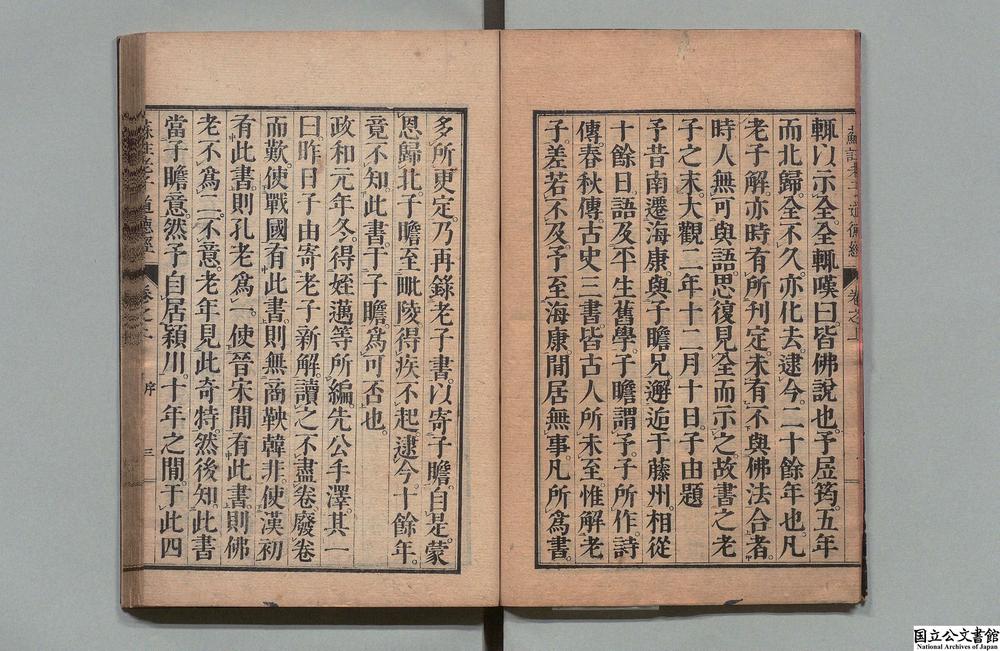 輒以示全。全輒嘆曰皆佛說也。予居筠。五年
而北歸。全不久。亦化去。逮今。二十餘年也。凡
老子解。亦時有所刊定。未有不與佛法合者。
時人無可與語。思復見全而示之。故書之老
子之末。大觀二年十二月十日。子由題
予昔南遷海康。與子瞻兄邂逅于藤州。相從
十餘日。語及平生舊學。子瞻謂予。子所作。詩
傳。春秋傳古史三書。皆古人所未至。惟解老
子。差若不及。予至海康閒居無事。凡所爲書。
多所更定。乃再錄老子書。以寄子瞻。自是。蒙
恩歸北。子瞻至毗陵。得疾不起。逮今。十餘年。
竟不知。此書。于子瞻。爲可否也。
政和元年冬。得姪邁等所編。先公手澤。其一
曰。昨日子由寄老子新解。讀之不盡卷。廢卷
而歎。使戰國有此書。則無商鞅韓非。使漢初
有此書。則孔老爲一。使晉宋間有此書。則佛
老不爲二。不意。老年見此奇特。然後知。此書
當子瞻意。然予自居潁川。十年之間。于此四
道德經 序 三
国立公文書館
National Archives of Japan